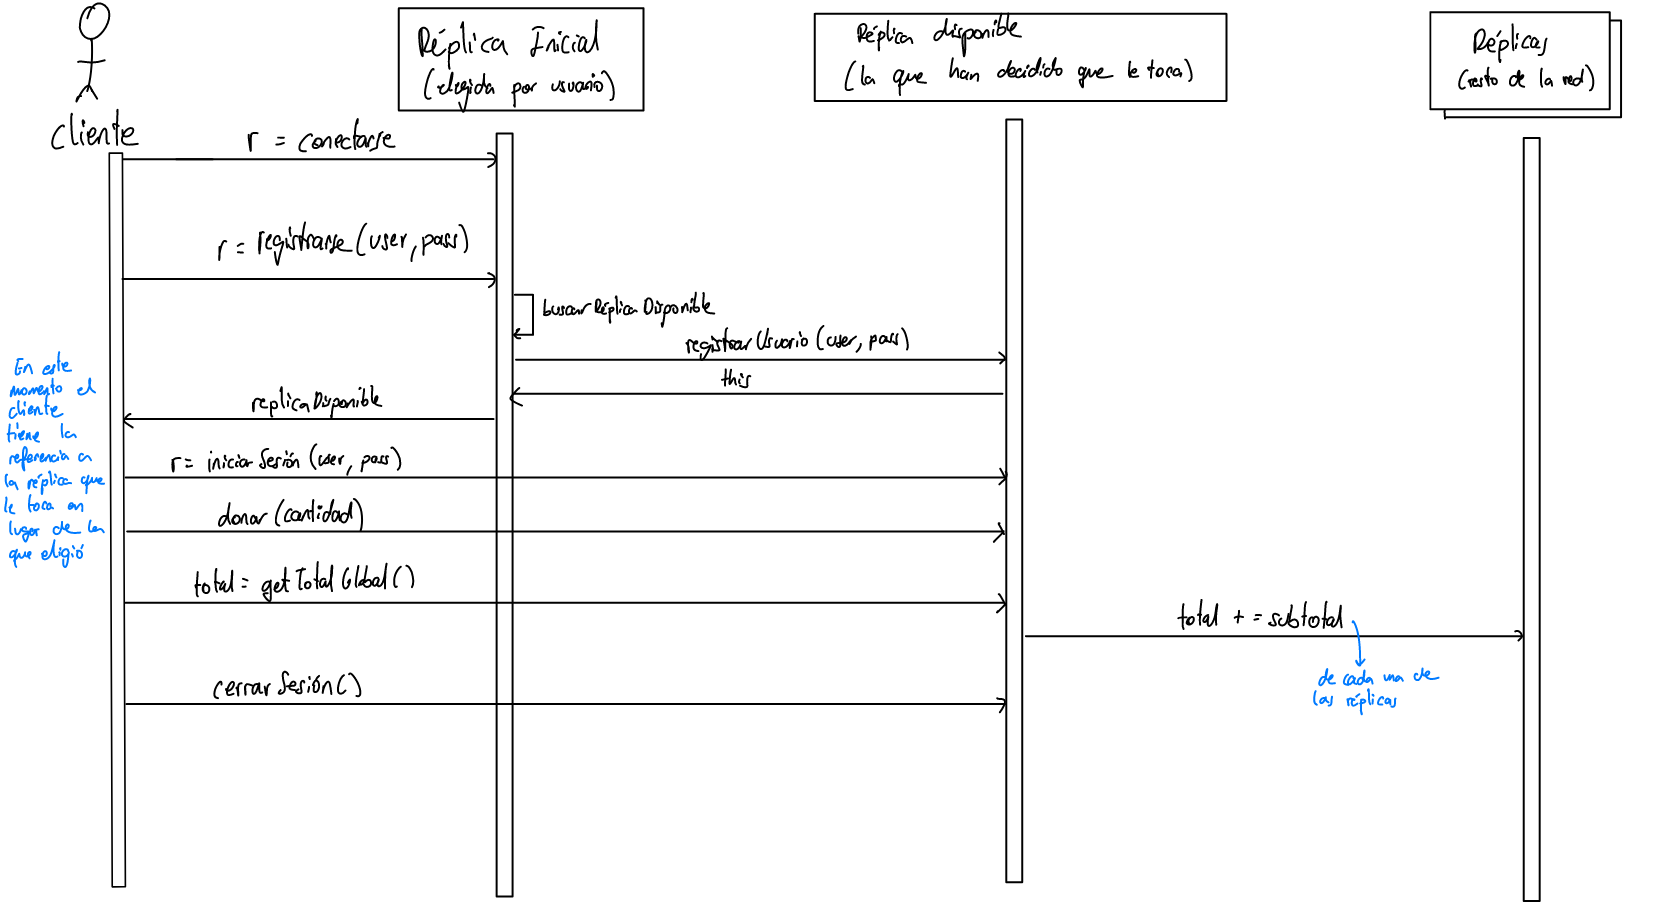 Réplica Inicial
(elegida por usuario)
Réplica disponible
(la que han decidido que le toca)
Réplicas
(resto de la red)
cliente
r = conectarse
r = registrarse(user, pass)
buscarRéplicaDisponible
registrarUsuario(user, pass)
this
replicaDisponible
En este
momento el
cliente
tiene la
referencia a
la réplica que
le toca en
lugar de la
que eligió
r = iniciarSesión(user, pass)
donar(cantidad)
total = getTotalGlobal()
total += subtotal
de cada una de
las réplicas
cerrarSesión()